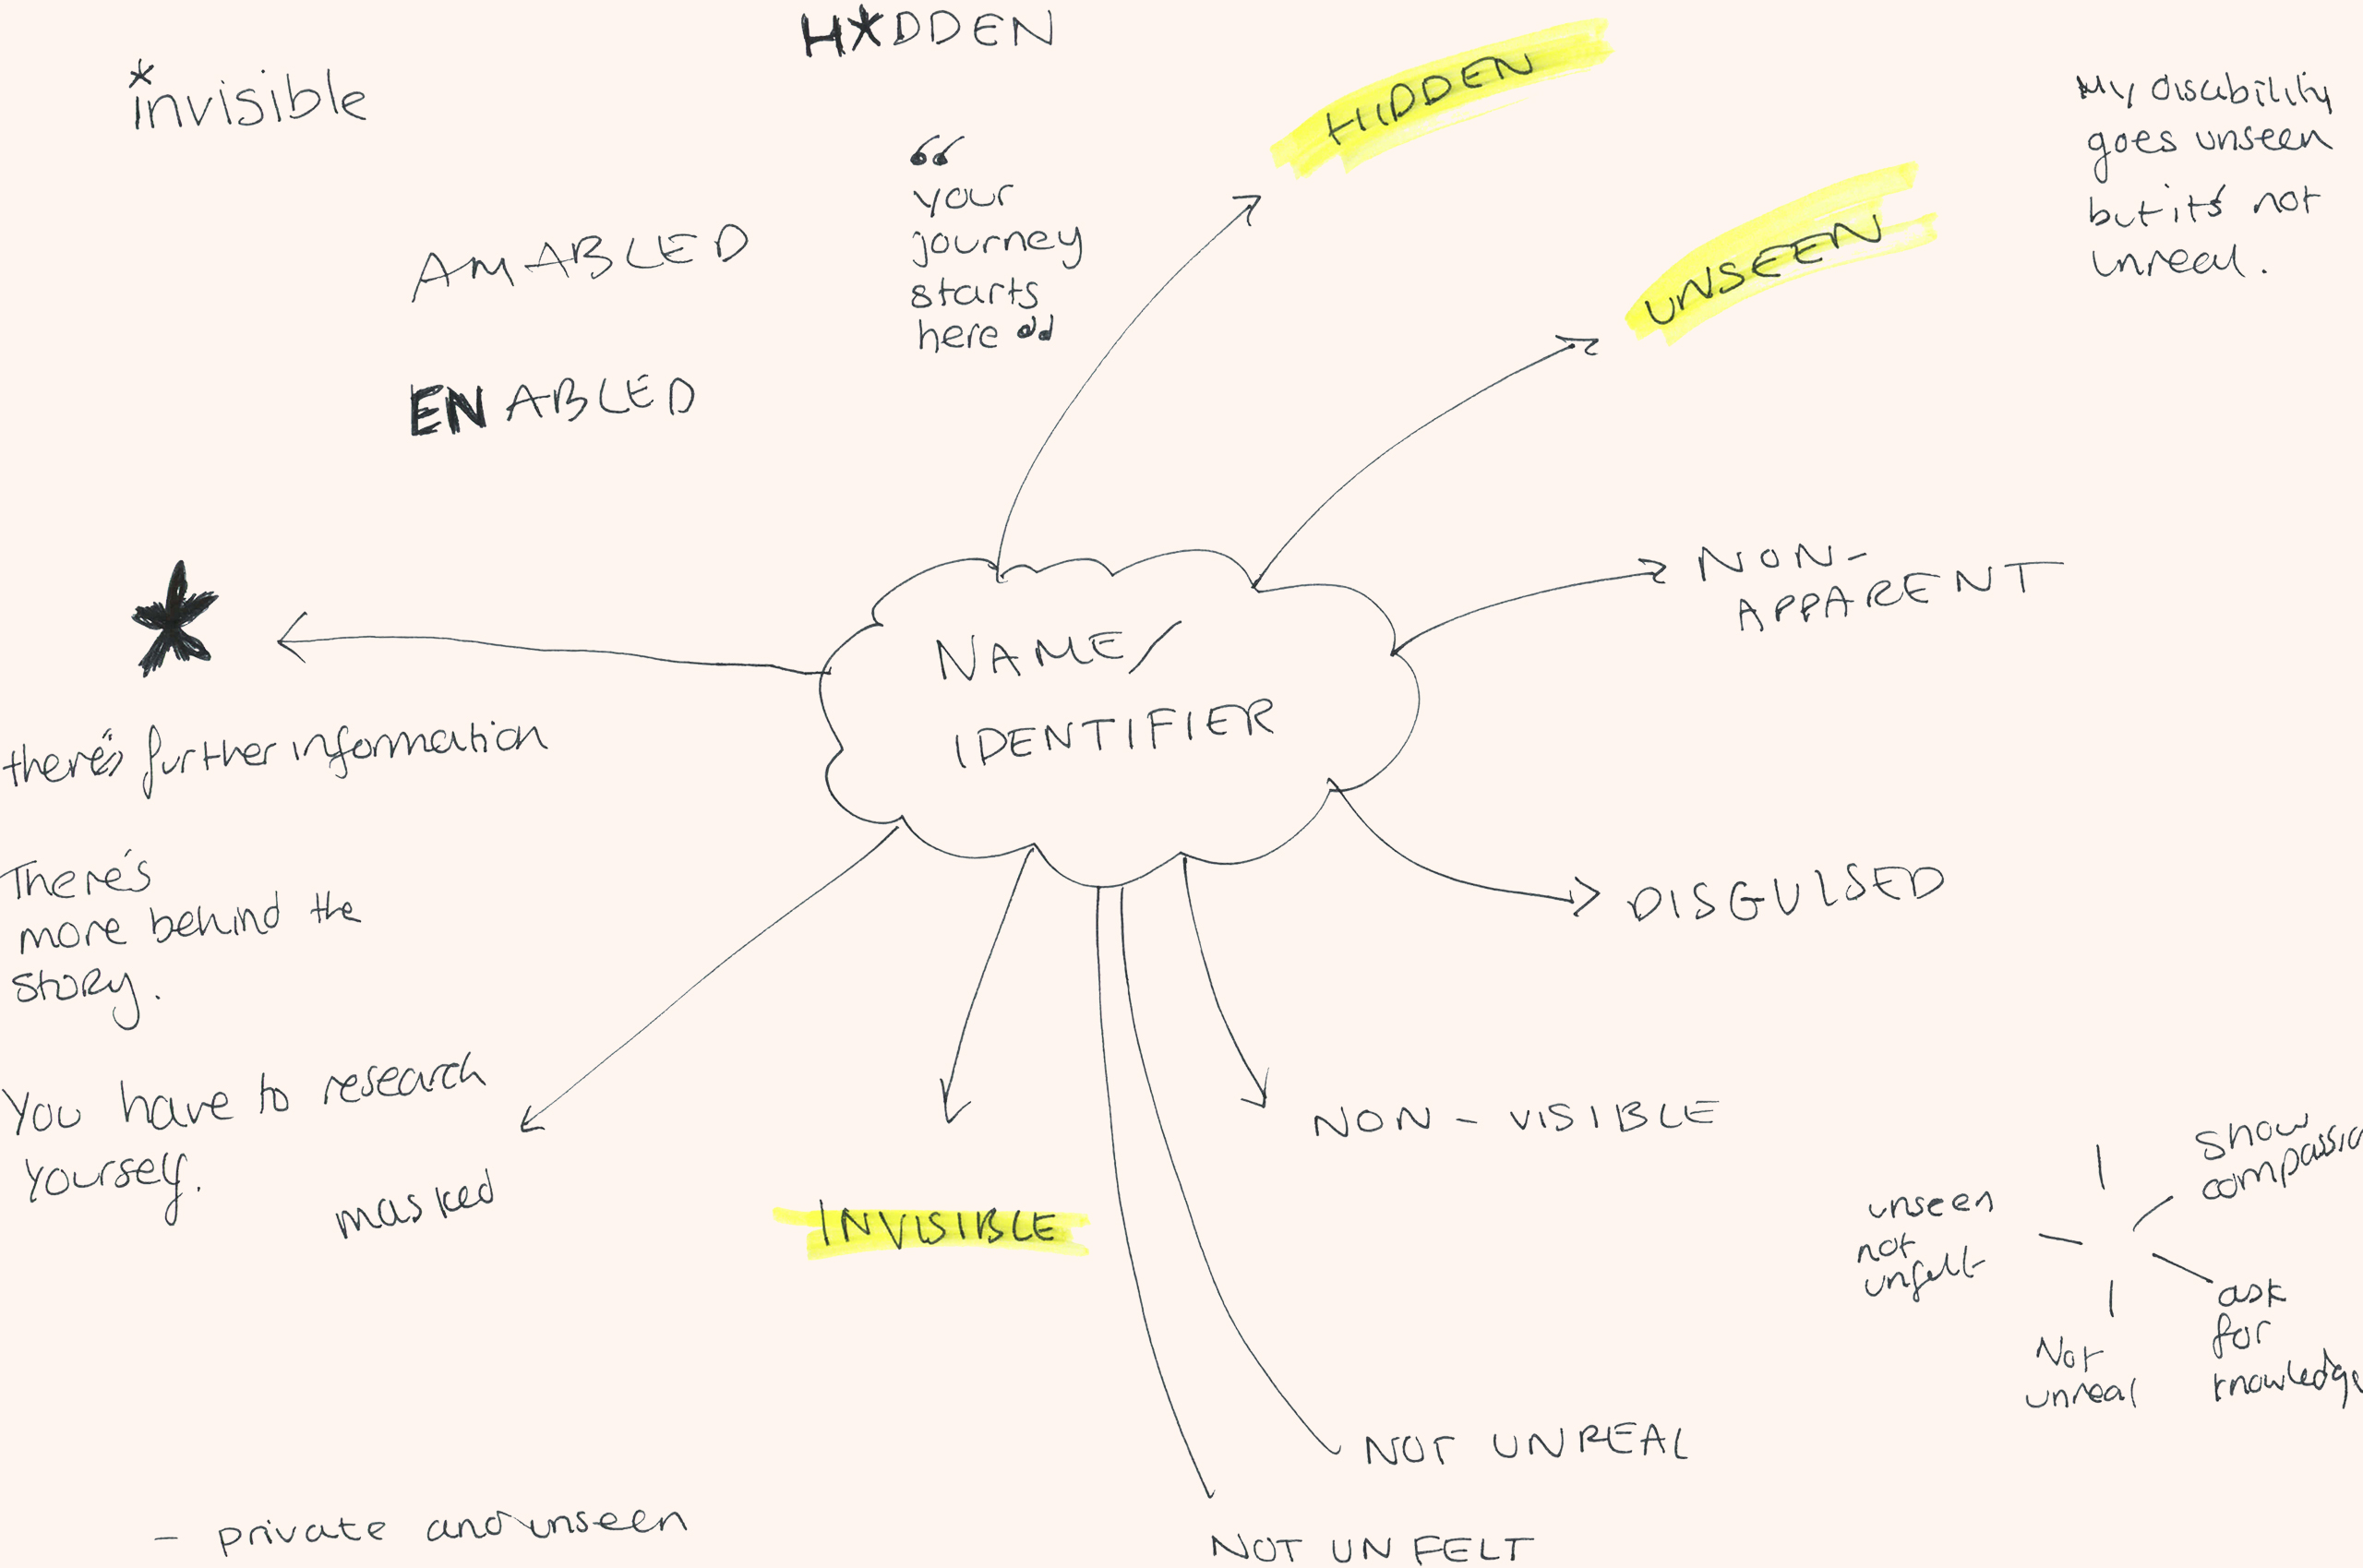 H*DDEN
*
invisible
HIDDEN
My disability
goes unseen
but it's not
unreal.
“
your
journey
starts
here ”
UNSEEN
AMABLED
ENABLED
NON-
APPARENT
*
NAME/
IDENTIFIER
there's further information
There's
more behind the
story.
DISGUISED
You have to research
yourself.
masked
NON - VISIBLE
INVISIBLE
show
compassio
unseen
not
unfelt
ask
for
knowledge
Not
unreal
NOT UNREAL
- private and unseen
NOT UNFELT